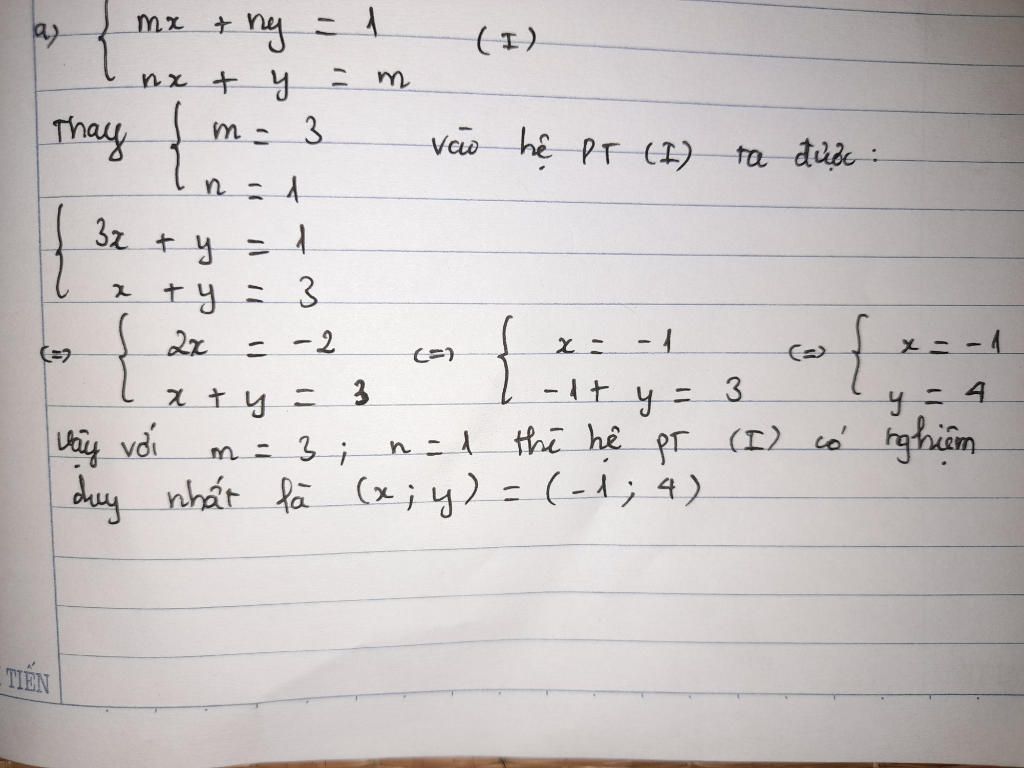 a) { mx + ny = 1 (I)
nx + y = m
Thay { m = 3 vào hệ PT (I) ta được:
n = 1
{ 3x + y = 1
x + y = 3
<=> { 2x = -2 <=> { x = -1 <=> { x = -1
x + y = 3 -1 + y = 3 y = 4
Vậy với m = 3 ; n = 1 thì hệ PT (I) có nghiệm
duy nhất là (x ; y) = (-1 ; 4)
TIẾN